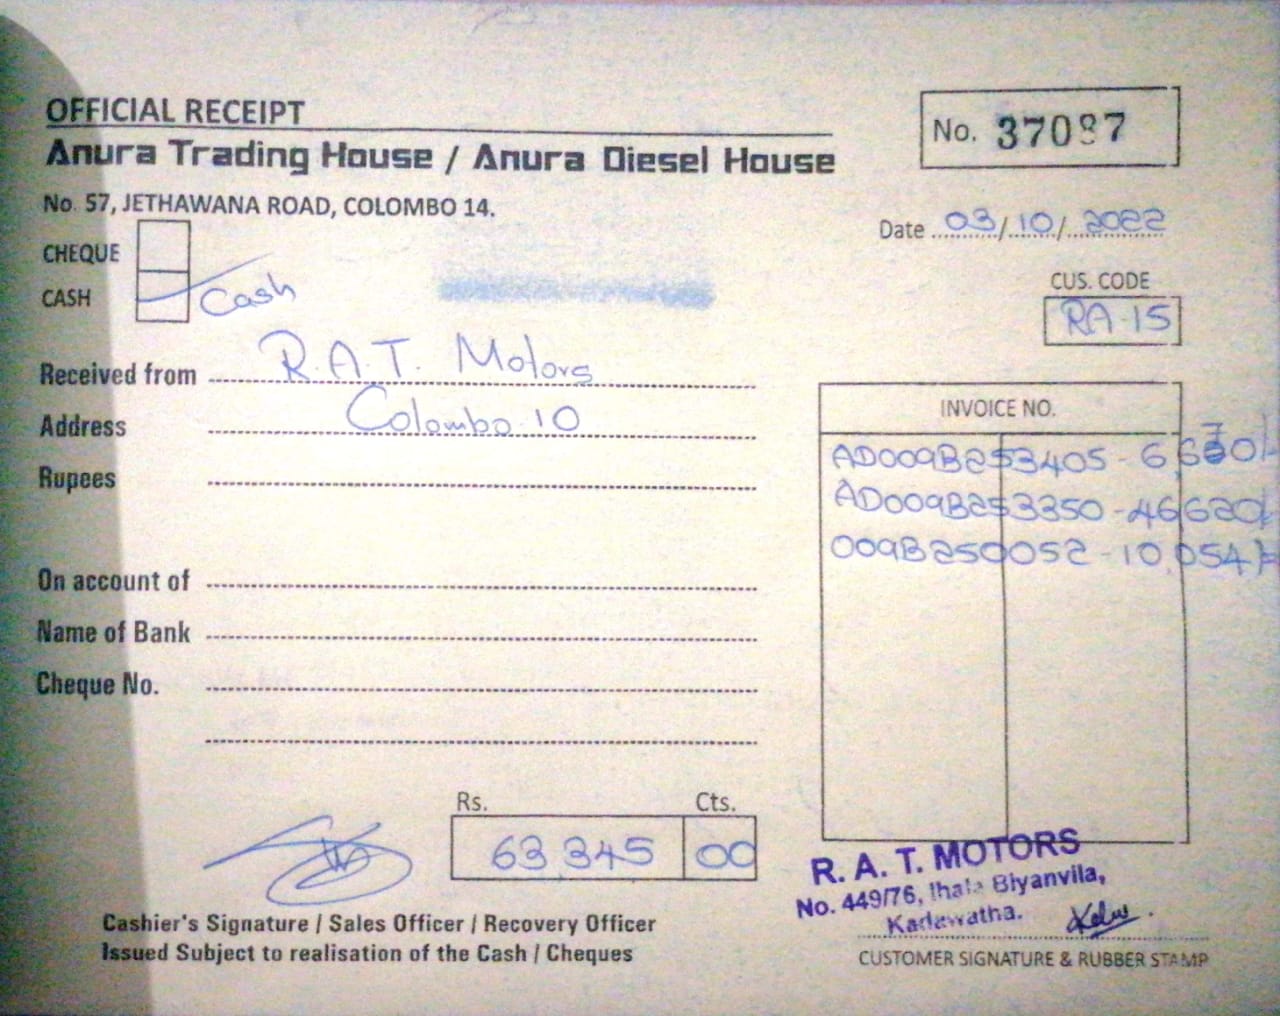 OFFICIAL RECEIPT
Anura Trading House / Anura Diesel House
No. 37087
No. 57, JETHAWANA ROAD, COLOMBO 14.
Date 03/10/2022
CHEQUE
CASH Cash
CUS. CODE
RA-15
Received from R.A.T. Motors
Address Colombo 10
Rupees
On account of
Name of Bank
Cheque No.
INVOICE NO.
AD009B253405 - 6,670/-
AD009B253350 - 46,620/-
009B250052 - 10,054/=
Rs. Cts.
63,345 00
Cashier's Signature / Sales Officer / Recovery Officer
Issued Subject to realisation of the Cash / Cheques
R. A. T. MOTORS
No. 449/76, Ihala Biyanvila,
Kadawatha.
CUSTOMER SIGNATURE & RUBBER STAMP